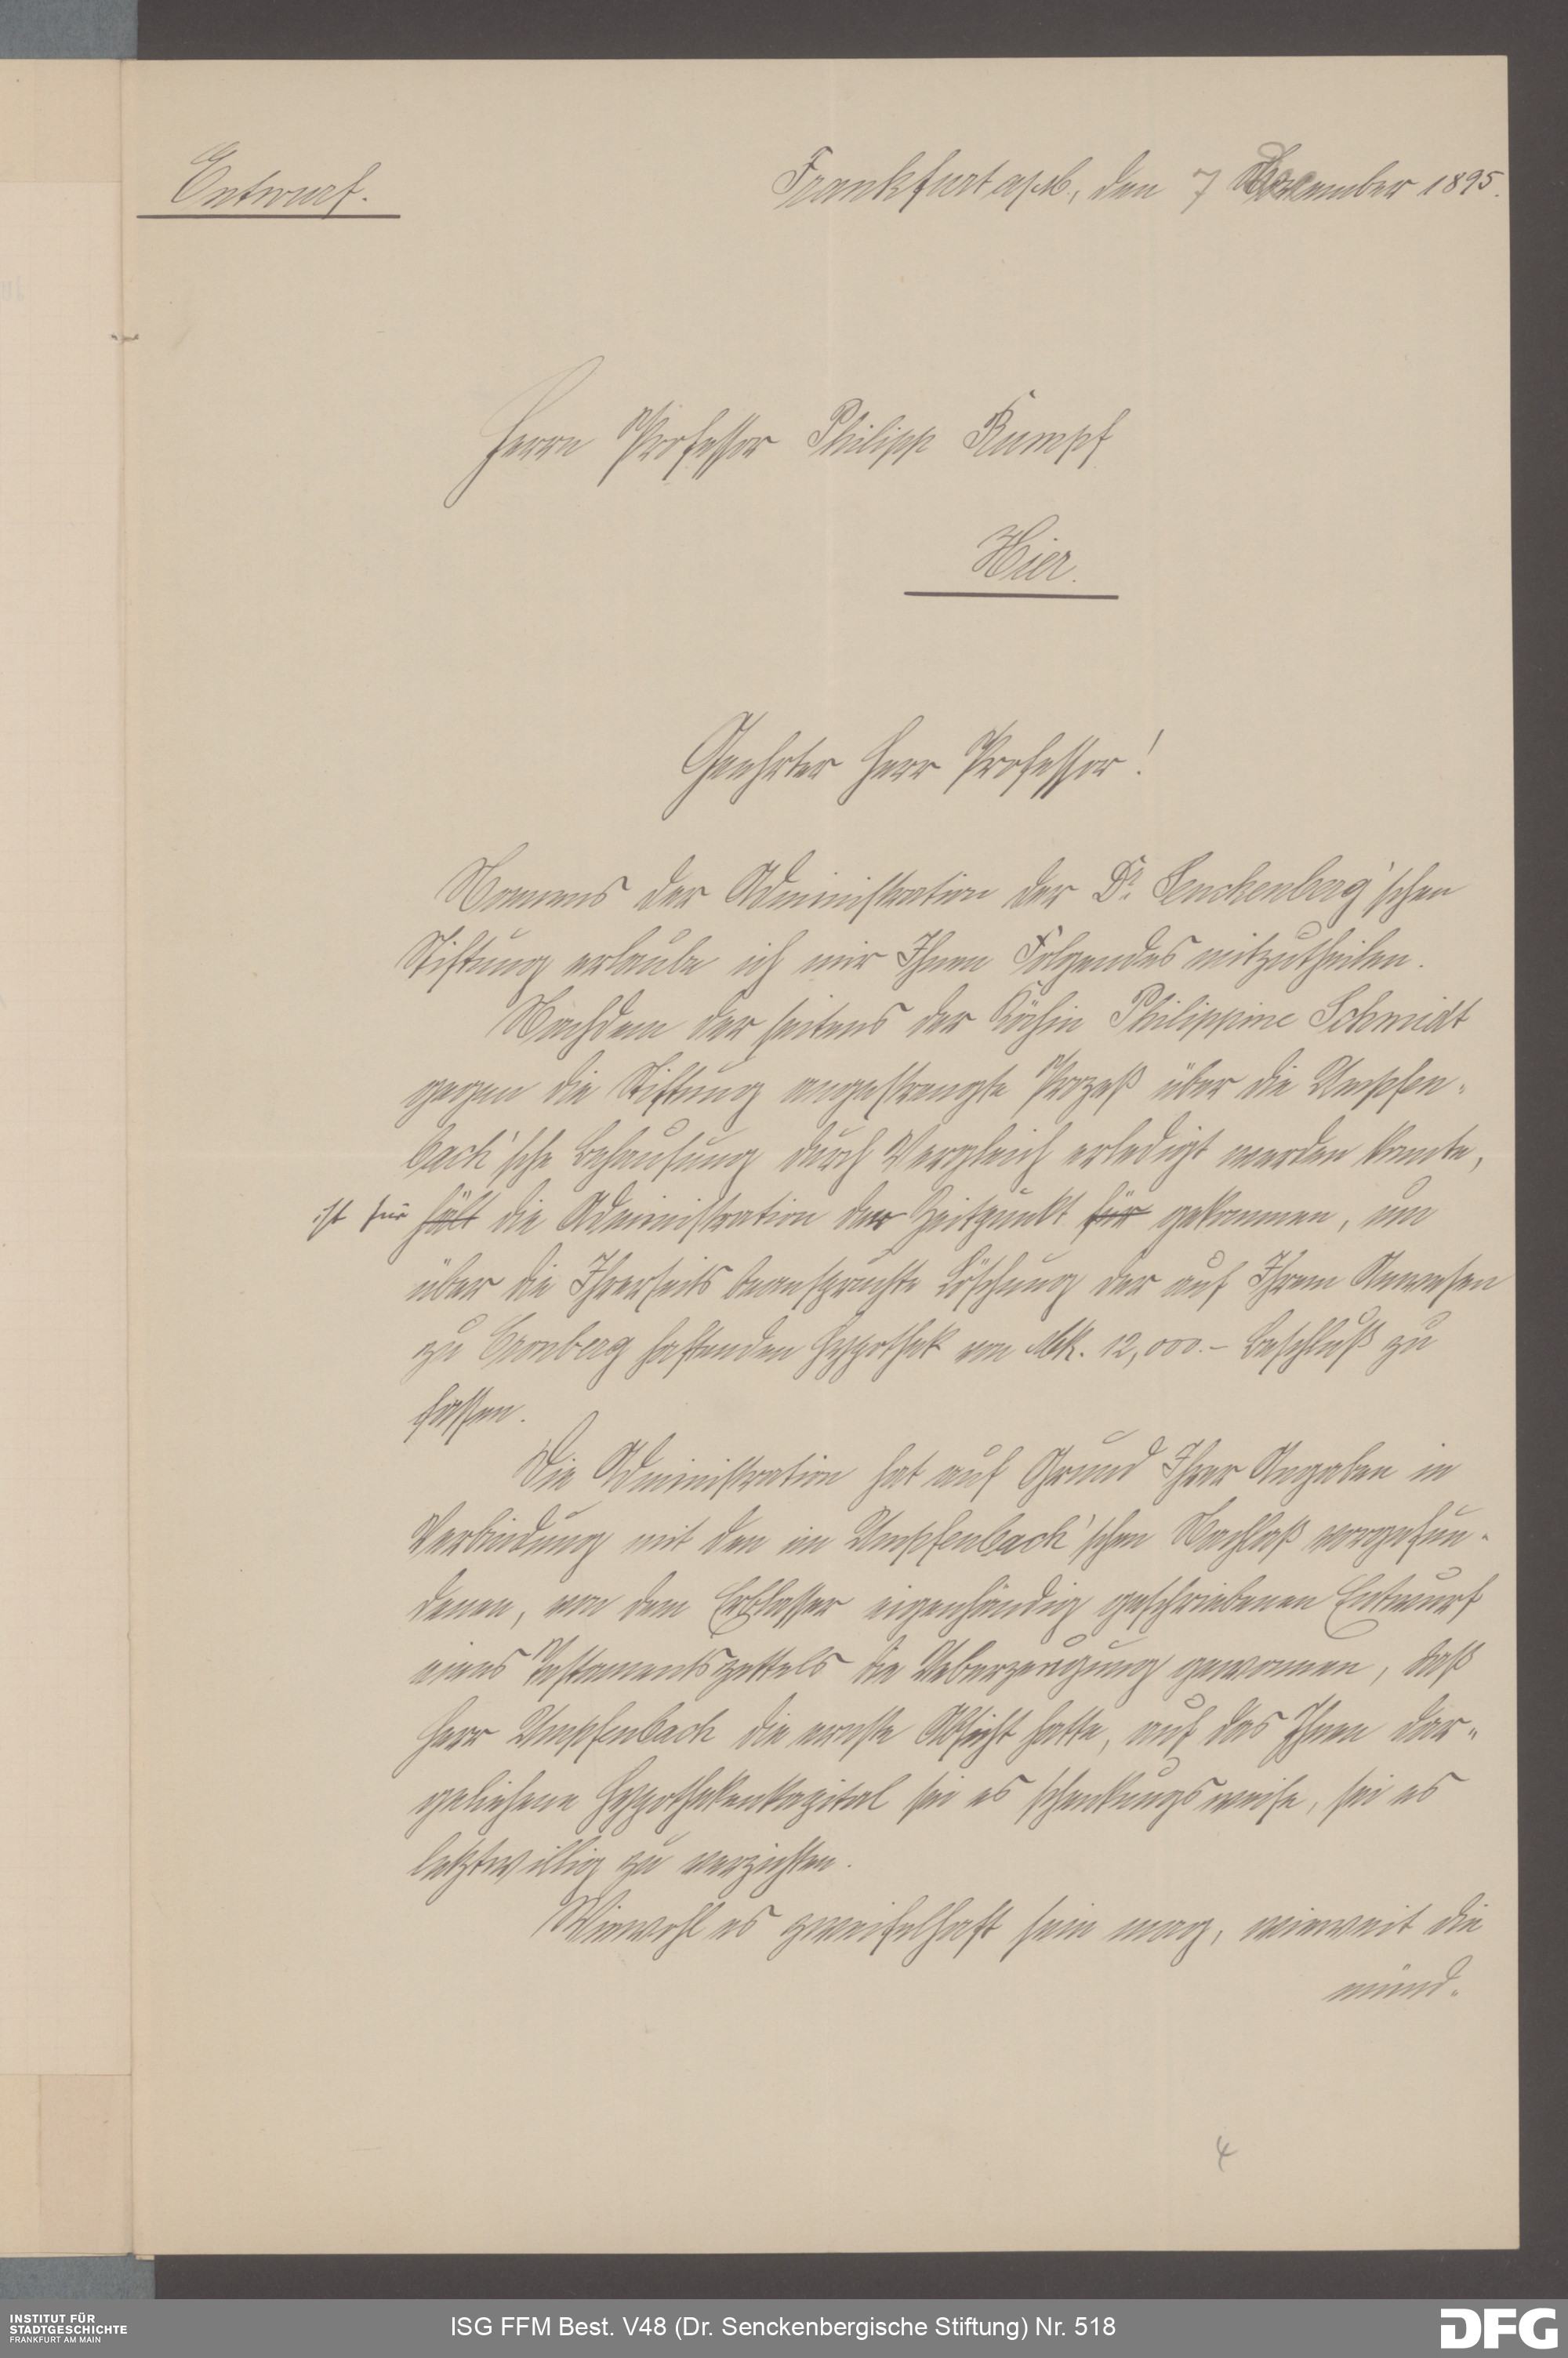 Entwurf.
Frankfurt a/M, den 7 Dezember 1895.
Herrn Professor Philipp Rumpf
Hier.
Geehrter Herr Professor!
Namens der Administration der Dr. Senckenberg'schen
Stiftung erlaube ich mir Ihnen Folgendes mitzutheilen.
Nachdem der seitens der Köchin Philippine Schmidt
gegen die Stiftung angestrengte Prozeß über die Umpfen-
bach'sche Behausung durch Vergleich erledigt werden konnte,
ist für hält die Administration der Zeitpunkt für gekommen, um
über die Ihrerseits beanspruchte Löschung der auf Ihrem Anwesen
zu Cronberg haftenden Hypothek von Mk. 12,000.- Beschluß zu
fassen.
Die Administration hat auf Grund Ihrer Angaben in
Verbindung mit den im Umpfenbach'schen Nachlaß vorgefun-
denen, von dem Erblasser eigenhändig geschriebenen Entwurf
eines Testamentszettels die Ueberzeugung gewonnen, daß
Herr Umpfenbach die ernste Absicht hatte, auf das Ihnen dar-
geliehene Hypothekenkapital sei es schenkungsweise, sei es
letztwillig zu verzichten.
Wiewohl es zweifelhaft sein mag, wieweit die
münd-
4
INSTITUT FÜR
STADTGESCHICHTE
FRANKFURT AM MAIN
ISG FFM Best. V48 (Dr. Senckenbergische Stiftung) Nr. 518
DFG